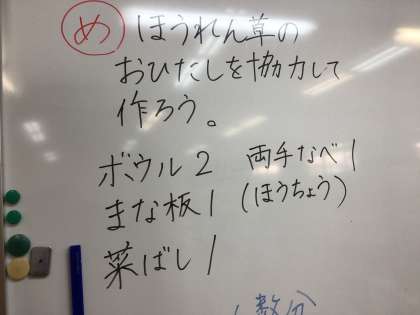 め ほうれん草の
おひたしを協力して
作ろう。
ボウル2 両手なべ1
まな板1 (ほうちょう)
菜ばし1